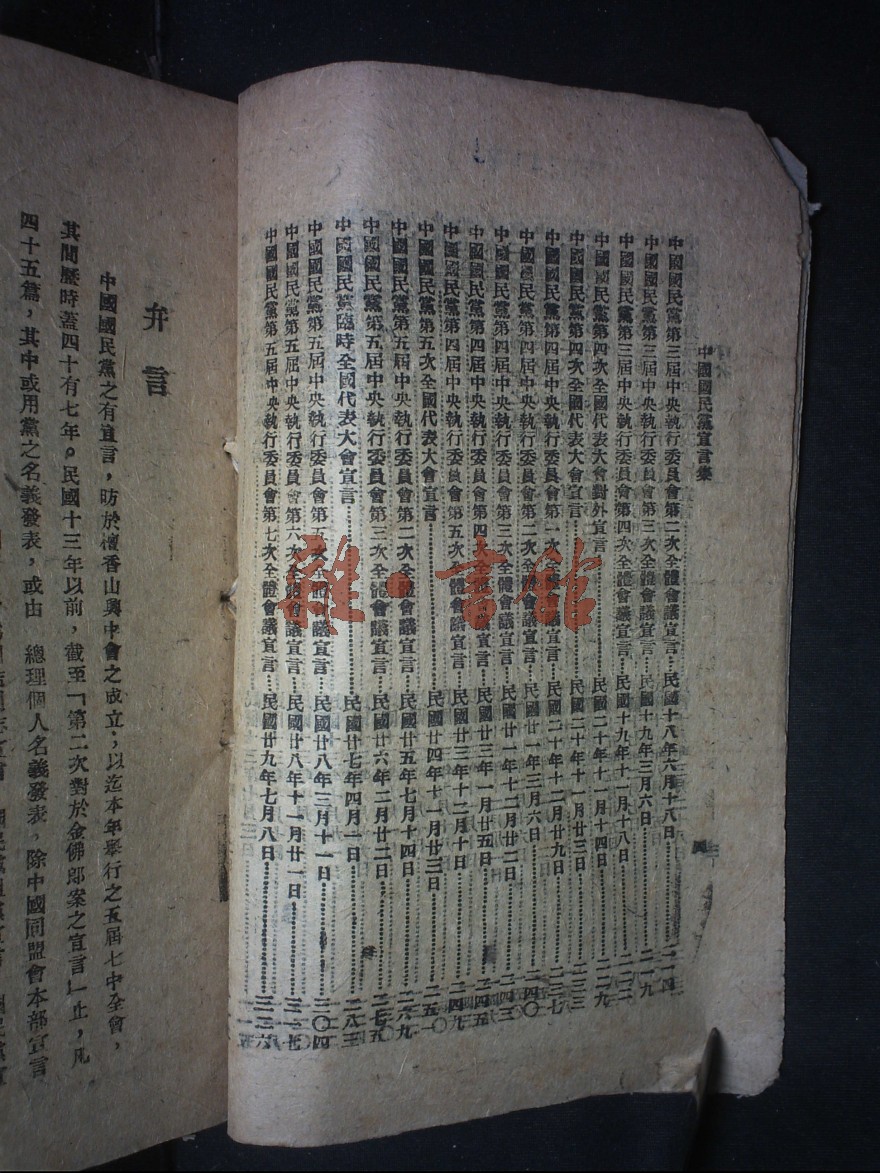 中國國民黨宣言集
中國國民黨第三屆中央執行委員會第二次全體會議宣言…民國十八年六月十八日……二一四
中國國民黨第三屆中央執行委員會第三次全體會議宣言…民國十九年三月六日……二一九
中國國民黨第三屆中央執行委員會第四次全體會議宣言…民國十九年十一月十八日……二二二
中國國民黨第四次全國代表大會對外宣言……民國二十年十一月十四日……二二九
中國國民黨第四次全國代表大會宣言……民國二十年十一月廿三日……二三三
中國國民黨第四屆中央執行委員會第一次全體會議宣言…民國二十年十二月廿九日……二三七
中國國民黨第四屆中央執行委員會第二次全體會議宣言…民國廿一年三月六日……二四〇
中國國民黨第四屆中央執行委員會第三次全體會議宣言…民國廿一年十二月廿二日……二四三
中國國民黨第四屆中央執行委員會第四次全體會議宣言…民國廿三年一月廿五日……二四五
中國國民黨第四屆中央執行委員會第五次全體會議宣言…民國廿三年十二月十日……二四九
中國國民黨第五次全國代表大會宣言……民國廿四年十一月廿三日……二五一
中國國民黨第五屆中央執行委員會第二次全體會議宣言…民國廿五年七月十四日……二六九
中國國民黨第五屆中央執行委員會第三次全體會議宣言…民國廿六年二月廿二日……二七五
中國國民黨臨時全國代表大會宣言……民國廿七年四月一日……二八三
中國國民黨第五屆中央執行委員會第五次全體會議宣言…民國廿八年二月十一日……三〇四
中國國民黨第五屆中央執行委員會第六次全體會議宣言…民國廿八年十一月廿一日……三一七
中國國民黨第五屆中央執行委員會第七次全體會議宣言…民國廿九年七月八日……三二六
弁言
中國國民黨之有宣言，昉於檀香山興中會之成立；以迄本年舉行之五屆七中全會，
其間歷時蓋四十有七年。民國十三年以前，截至「第二次對於金佛郎案之宣言」止，凡
四十五篇，其中或用黨之名義發表，或由　總理個人名義發表，除中國同盟會本部宣言
雜·書館